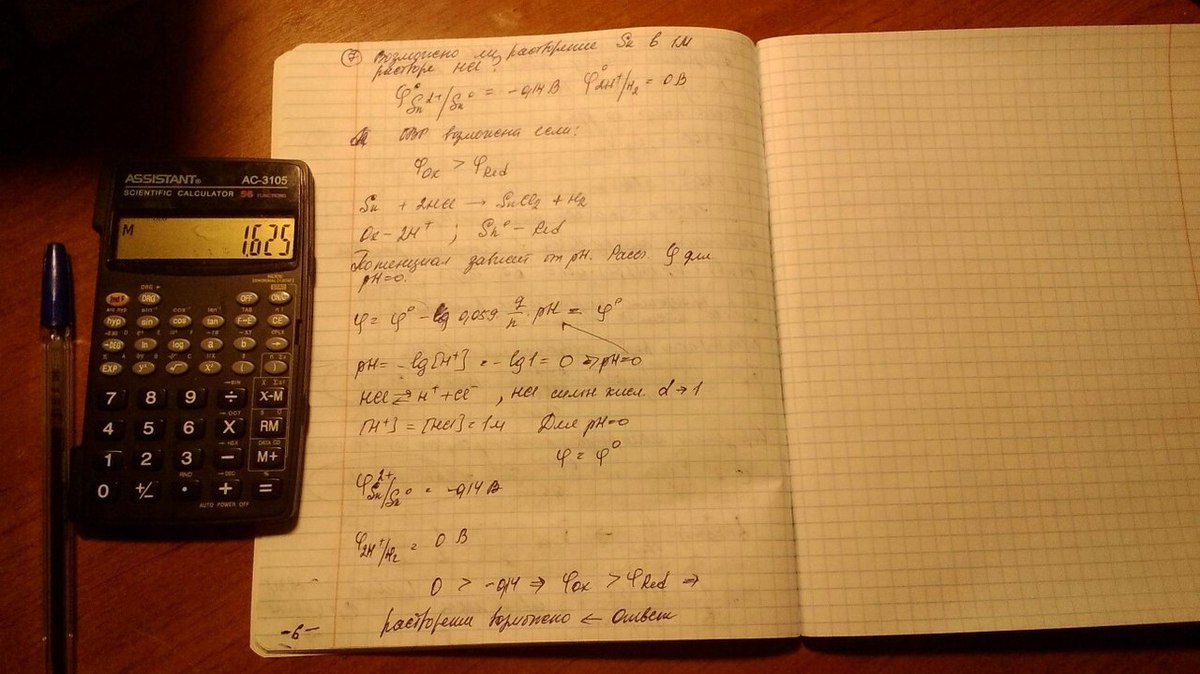 ASSISTANT
AC-3105
SCIENTIFIC CALCULATOR 56 FUNCTIONS
M
1.625
DRG ►
OFF
hyp sin cos tan F↔E CE
ln log a b
EXP
7 8 9 ÷ X-M
4 5 6 X RM
1 2 3 − M+
0 +/− • + =
AUTO POWER OFF
⑦ Возможено ли растворение Sn в 1М
растворе HCl?
φ°Sn²⁺/Sn⁰ = −0,14 В φ°2H⁺/H₂ = 0 В
ОВР возможена если:
φOx > φRed
Sn + 2HCl → SnCl₂ + H₂
Ox − 2H⁺ ; Sn⁰ − Red
Потенциал зависит от pH. Расс. φ для
pH=0.
φ = φ⁰ − 0,059 · q/n · pH = φ⁰
pH = −lg[H⁺] = −lg1 = 0 ⇒ pH=0
HCl ⇄ H⁺ + Cl⁻ , HCl сильн. кисл. α → 1
[H⁺] = [HCl] = 1М Для pH=0
φ = φ⁰
φSn²⁺/Sn⁰ = −0,14 В
φ2H⁺/H₂ = 0 В
0 > −0,14 ⇒ φOx > φRed ⇒
растворение возможено ← Ответ
-6-